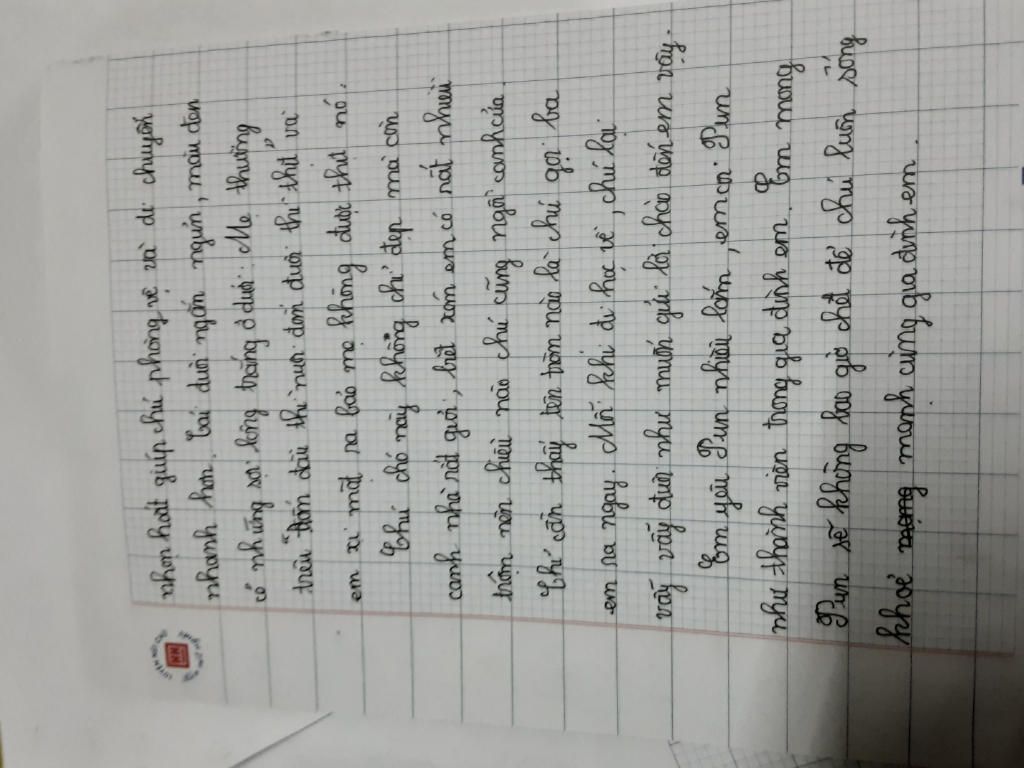 nhọn hoắt giúp chú phòng vệ và di chuyển
nhanh hơn. Cái đuôi ngắn ngủn, màu đen
có những sợi lông trắng ở dưới. Mẹ thường
trêu "đốn đầu thì nuôi đốn đuôi thì thịt" và
em xị mặt ra bảo mẹ không được thịt nó.
Chú chó này không chỉ đẹp mà còn
canh nhà rất giỏi, biết xóm em có rất nhiều
trộm nên chiều nào chú cũng ngồi canh cửa.
Chỉ cần thấy tên trộm nào là chú gọi ba
em ra ngay. Mỗi khi đi học về, chú lại
vẫy vẫy đuôi như muốn gửi lời chào đến em vậy.
Em yêu Pun nhiều lắm, em coi Pun
như thành viên trong gia đình em. Em mong
Pun sẽ không bao giờ chết để chú luôn sống
khoẻ mạnh cùng gia đình em.